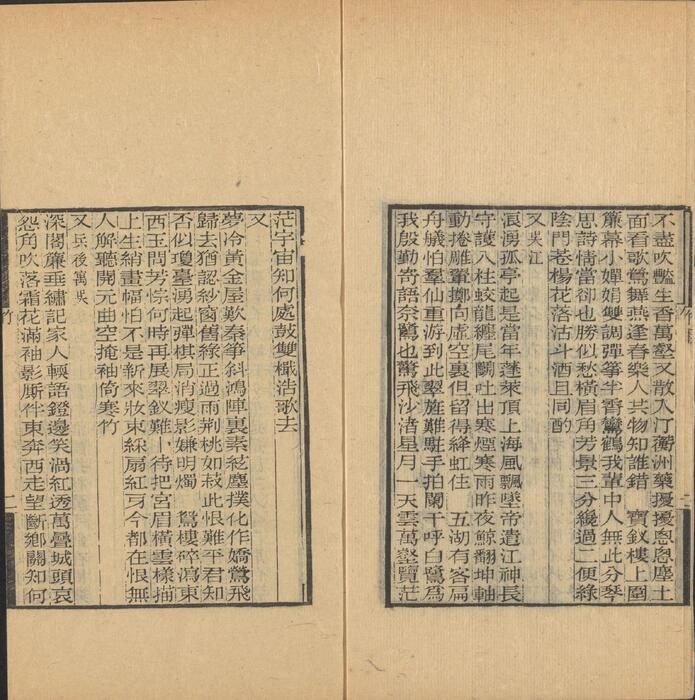 不盡吹豔生香萬壑又散入汀蘅洲藥擾擾悤悤塵土
面看歌鶯舞燕逢春樂人共物知誰錯　寶釵樓上圍
簾幕小嬋娟雙調彈箏半宵鸞鶴我輩中人無此分琴
思詩情當卻也勝似愁橫眉角芳景三分纔過二便綠
陰門巷楊花落沽斗酒且同酌
又吳江
浪湧孤亭起是當年蓬萊頂上海風飄墜帝遣江神長
守護八柱蛟龍纏尾鬬吐出寒煙寒雨昨夜鯨翻坤軸
動捲雕翬擲向虛空裏但留得絳虹住　五湖有客扁
舟艤怕羣仙重游到此翠旌難駐手拍闌干呼白鷺爲
我殷勤寄語奈鷺也驚飛沙渚星月一天雲萬壑覽茫
茫宇宙知何處鼓雙檝浩歌去
又
夢冷黃金屋歎秦箏斜鴻陣裏素絃塵撲化作嬌鶯飛
歸去猶認紗窗舊綠正過雨荆桃如菽此恨難平君知
否似瓊臺湧起彈棋局消瘦影嫌明燭　鴛樓碎瀉東
西玉問芳悰何時再展翠釵難卜待把宮眉橫雲樣描
上生綃畫幅怕不是新來妝束綵扇紅牙今都在恨無
人解聽開元曲空掩袖倚寒竹
又兵後寓吳
深閣簾垂繡記家人輭語鐙邊笑渦紅透萬疊城頭哀
怨角吹落霜花滿袖影厮伴東奔西走望斷鄉關知何
竹
二